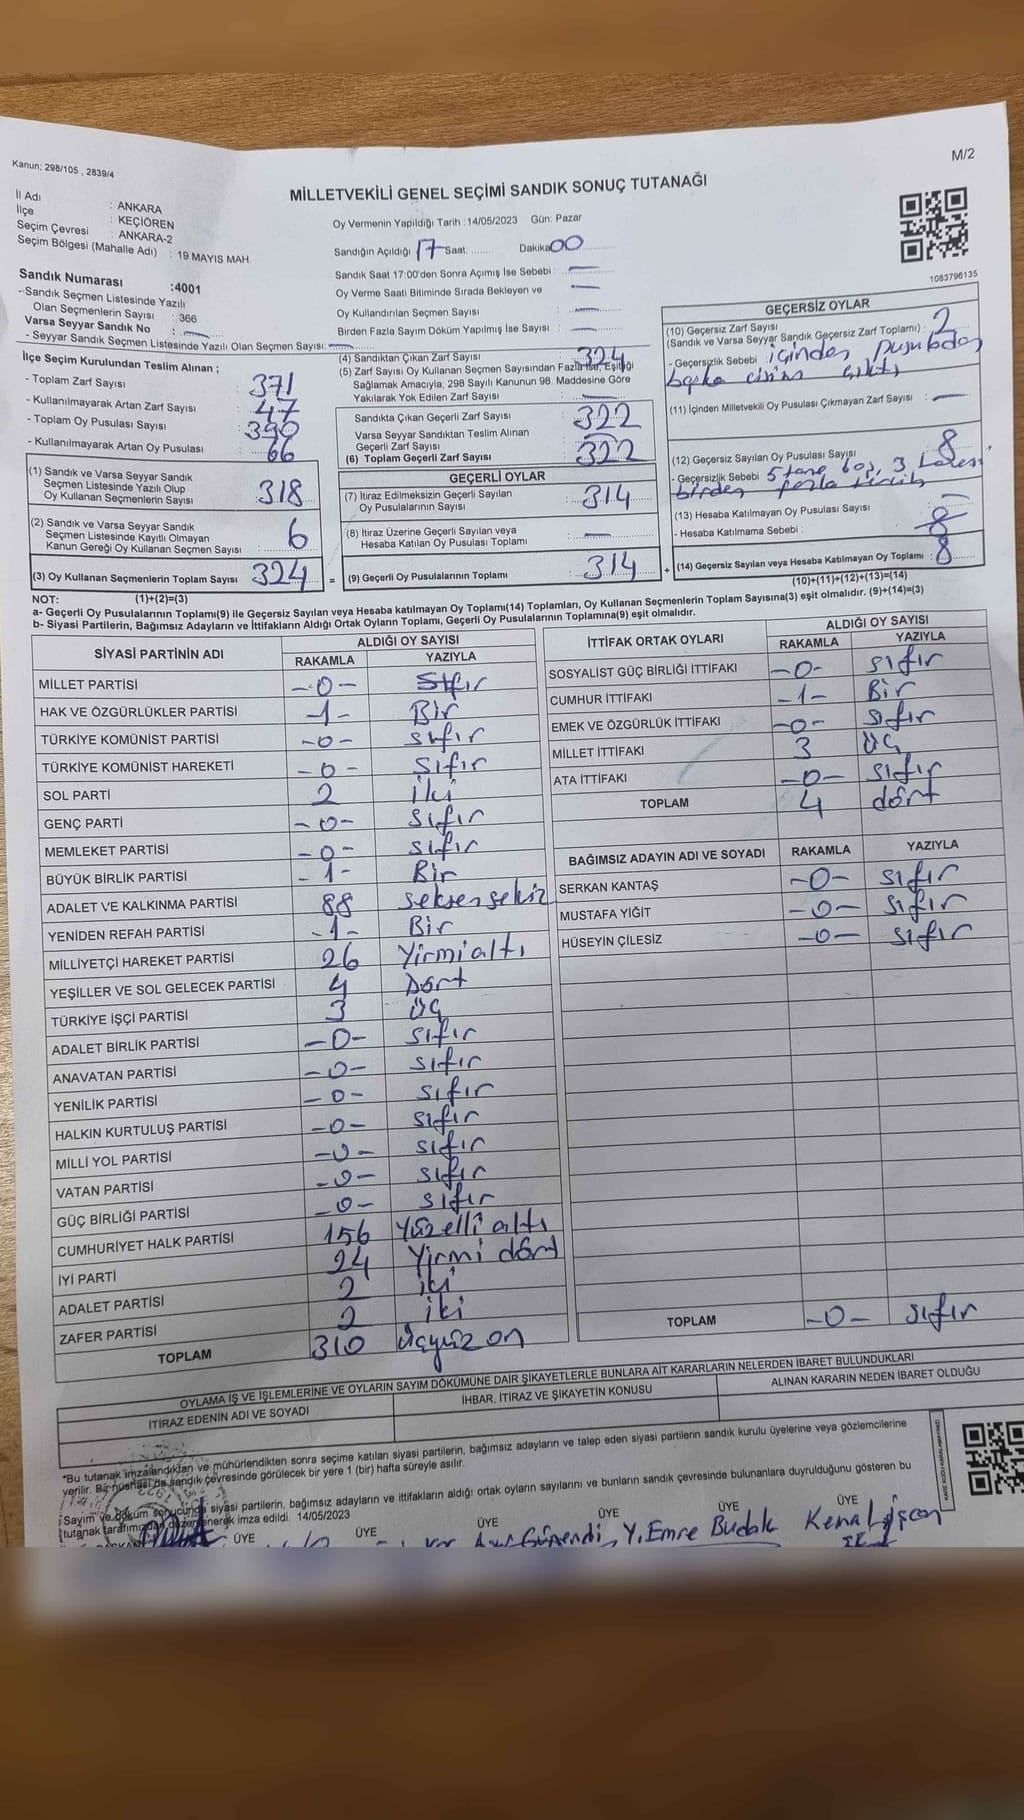 Kanun: 298/105 , 2839/4
M/2
MİLLETVEKİLİ GENEL SEÇİMİ SANDIK SONUÇ TUTANAĞI
İl Adı : ANKARA
İlçe : KEÇİÖREN
Seçim Çevresi : ANKARA-2
Seçim Bölgesi (Mahalle Adı) : 19 MAYIS MAH.
Sandık Numarası :4001
- Sandık Seçmen Listesinde Yazılı
Olan Seçmenlerin Sayısı : 366
Varsa Seyyar Sandık No : —
- Seyyar Sandık Seçmen Listesinde Yazılı Olan Seçmen Sayısı: —
Oy Vermenin Yapıldığı Tarih : 14/05/2023 Gün: Pazar
Sandığın Açıldığı 17 Saat: Dakika 00
Sandık Saat 17:00'den Sonra Açımış İse Sebebi : —
Oy Verme Saati Bitiminde Sırada Bekleyen ve —
Oy Kullandırılan Seçmen Sayısı : —
Birden Fazla Sayım Döküm Yapılmış İse Sayısı : —
1083796135
İlçe Seçim Kurulundan Teslim Alınan ;
- Toplam Zarf Sayısı : 371
- Kullanılmayarak Artan Zarf Sayısı : 47
- Toplam Oy Pusulası Sayısı : 390
- Kullanılmayarak Artan Oy Pusulası : 66
(1) Sandık ve Varsa Seyyar Sandık
Seçmen Listesinde Yazılı Olup
Oy Kullanan Seçmenlerin Sayısı : 318
(2) Sandık ve Varsa Seyyar Sandık
Seçmen Listesinde Kayıtlı Olmayan
Kanun Gereği Oy Kullanan Seçmen Sayısı : 6
(3) Oy Kullanan Seçmenlerin Toplam Sayısı : 324
(1)+(2)=(3)
(4) Sandıktan Çıkan Zarf Sayısı : 324
(5) Zarf Sayısı Oy Kullanan Seçmen Sayısından Fazla ise, Eşitliği
Sağlamak Amacıyla; 298 Sayılı Kanunun 98. Maddesine Göre
Yakılarak Yok Edilen Zarf Sayısı : —
Sandıkta Çıkan Geçerli Zarf Sayısı : 322
Varsa Seyyar Sandıktan Teslim Alınan
Geçerli Zarf Sayısı : —
(6) Toplam Geçerli Zarf Sayısı : 322
GEÇERLİ OYLAR
(7) İtiraz Edilmeksizin Geçerli Sayılan
Oy Pusulalarının Sayısı : 314
(8) İtiraz Üzerine Geçerli Sayılan veya
Hesaba Katılan Oy Pusulası Toplamı : —
= (9) Geçerli Oy Pusulalarının Toplamı : 314 +
GEÇERSİZ OYLAR
(10) Geçersiz Zarf Sayısı
(Sandık ve Varsa Seyyar Sandık Geçersiz Zarf Toplamı) : 2
- Geçersizlik Sebebi : içinden pusuladan
başka cisim çıktı
(11) İçinden Milletvekili Oy Pusulası Çıkmayan Zarf Sayısı : —
(12) Geçersiz Sayılan Oy Pusulası Sayısı : 8
- Geçersizlik Sebebi 5 tane boş, 3 tanesi
birden fazla
(13) Hesaba Katılmayan Oy Pusulası Sayısı —
- Hesaba Katılmama Sebebi :
(14) Geçersiz Sayılan veya Hesaba Katılmayan Oy Toplamı : 8
(10)+(11)+(12)+(13)=(14)
NOT:
a- Geçerli Oy Pusulalarının Toplamı(9) ile Geçersiz Sayılan veya Hesaba katılmayan Oy Toplamı(14) Toplamları, Oy Kullanan Seçmenlerin Toplam Sayısına(3) eşit olmalıdır. (9)+(14)=(3)
b- Siyasi Partilerin, Bağımsız Adayların ve İttifakların Aldığı Ortak Oyların Toplamı, Geçerli Oy Pusulalarının Toplamına(9) eşit olmalıdır.
SİYASİ PARTİNİN ADI ALDIĞI OY SAYISI
RAKAMLA YAZIYLA
MİLLET PARTİSİ -0- Sıfır
HAK VE ÖZGÜRLÜKLER PARTİSİ -1- Bir
TÜRKİYE KOMÜNİST PARTİSİ -0- sıfır
TÜRKİYE KOMÜNİST HAREKETİ -0- sıfır
SOL PARTİ 2 iki
GENÇ PARTİ -0- sıfır
MEMLEKET PARTİSİ -0- sıfır
BÜYÜK BİRLİK PARTİSİ -1- Bir
ADALET VE KALKINMA PARTİSİ 88 seksen sekiz
YENİDEN REFAH PARTİSİ -1- Bir
MİLLİYETÇİ HAREKET PARTİSİ 26 Yirmi altı
YEŞİLLER VE SOL GELECEK PARTİSİ 4 Dört
TÜRKİYE İŞÇİ PARTİSİ 3 üç
ADALET BİRLİK PARTİSİ -0- sıfır
ANAVATAN PARTİSİ -0- sıfır
YENİLİK PARTİSİ -0- sıfır
HALKIN KURTULUŞ PARTİSİ -0- sıfır
MİLLİ YOL PARTİSİ -0- sıfır
VATAN PARTİSİ -0- sıfır
GÜÇ BİRLİĞİ PARTİSİ -0- sıfır
CUMHURİYET HALK PARTİSİ 156 Yüzelli altı
İYİ PARTİ 24 Yirmi dört
ADALET PARTİSİ 2 iki
ZAFER PARTİSİ 2 iki
TOPLAM 310 üçyüz on
İTTİFAK ORTAK OYLARI ALDIĞI OY SAYISI
RAKAMLA YAZIYLA
SOSYALİST GÜÇ BİRLİĞİ İTTİFAKI -0- sıfır
CUMHUR İTTİFAKI -1- Bir
EMEK VE ÖZGÜRLÜK İTTİFAKI -0- sıfır
MİLLET İTTİFAKI 3 üç
ATA İTTİFAKI -0- sıfır
TOPLAM 4 dört
BAĞIMSIZ ADAYIN ADI VE SOYADI RAKAMLA YAZIYLA
SERKAN KANTAŞ -0- sıfır
MUSTAFA YİĞİT -0- sıfır
HÜSEYİN ÇİLESİZ -0- sıfır
TOPLAM -0- sıfır
OYLAMA İŞ VE İŞLEMLERİNE VE OYLARIN SAYIM DÖKÜMÜNE DAİR ŞİKAYETLERLE BUNLARA AİT KARARLARIN NELERDEN İBARET BULUNDUKLARI
İTİRAZ EDENİN ADI VE SOYADI İHBAR, İTİRAZ VE ŞİKAYETİN KONUSU ALINAN KARARIN NEDEN İBARET OLDUĞU
*Bu tutanak imzalandıktan ve mühürlendikten sonra seçime katılan siyasi partilerin, bağımsız adayların ve talep eden siyasi partilerin sandık kurulu üyelerine veya gözlemcilerine
verilir. Bir nüshası da sandık çevresinde görülecek bir yere 1 (bir) hafta süreyle asılır.
Sayım ve döküm sonucunda siyasi partilerin, bağımsız adayların ve ittifakların aldığı ortak oyların sayılarını ve bunların sandık çevresinde bulunanlara duyrulduğunu gösteren bu
tutanak tarafımızdan düzenlenerek imza edildi. 14/05/2023
ÜYE ÜYE ÜYE ÜYE ÜYE ÜYE
Günendi Y. Emre Budak Kenal